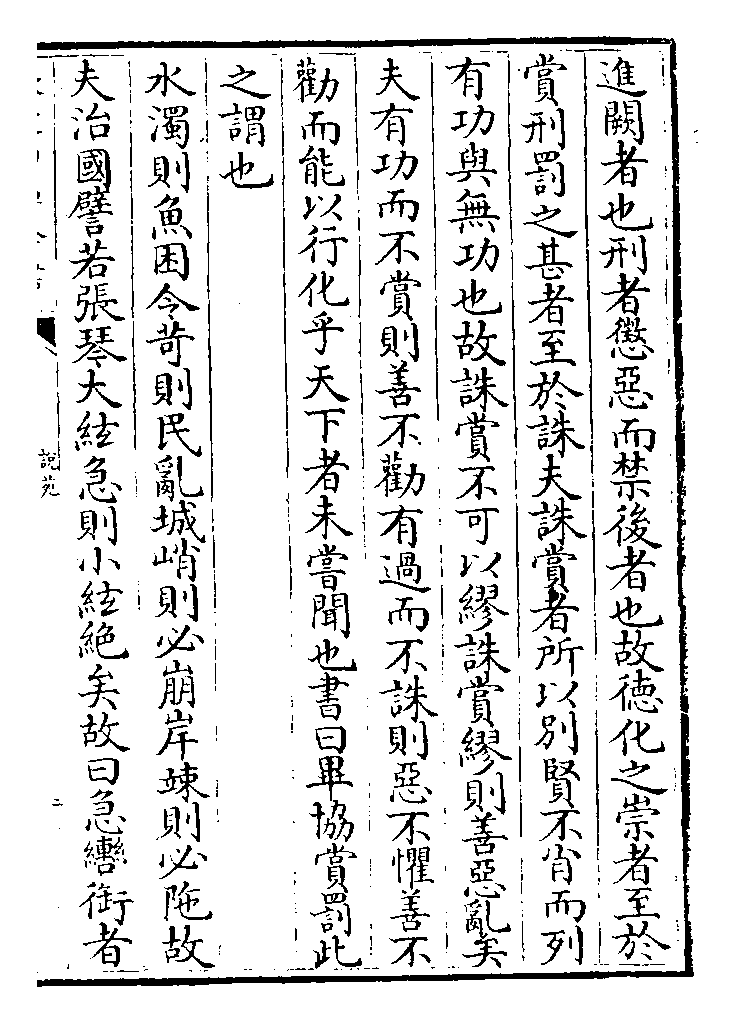 進闕者也刑者懲惡而禁後者也故徳化之崇者至於
賞刑罰之甚者至於誅夫誅賞者所以别賢不肖而列
有功與無功也故誅賞不可以繆誅賞繆則善惡亂矣
夫有功而不賞則善不勸有過而不誅則惡不懼善不
勸而能以行化乎天下者未嘗聞也書曰畢協賞罰此
之謂也
水濁則魚困令苛則民亂城峭則必崩岸竦則必陁故
夫治國譬若張琴大絃急則小絃絶矣故曰急轡銜者
說苑
二